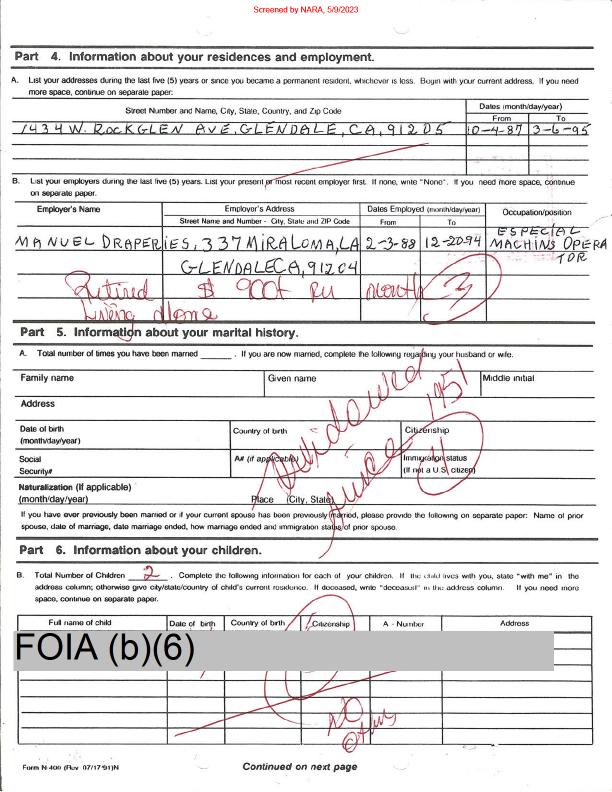 Screened by NARA, 5/9/2023
Part 4. Information about your residences and employment.
A. List your addresses during the last five (5) years or since you became a permanent resident, whichever is less. Begin with your current address. If you need
more space, continue on separate paper:
Street Number and Name, City, State, Country, and Zip Code
Dates (month/day/year)
From To
1434 W. ROCKGLEN AVE, GLENDALE, CA, 91205 10-4-87 3-6-95
B. List your employers during the last five (5) years. List your present or most recent employer first. If none, write "None". If you need more space, continue
on separate paper.
Employer's Name Employer's Address Dates Employed (month/day/year) Occupation/position
Street Name and Number - City, State and ZIP Code From To
MANUEL DRAPERIES, 337 MIRALOMA, LA 2-3-88 12-20-94 ESPECIAL
MACHINS OPERA
TOR
GLENDALE CA, 91204
Retired $ 900+ month 3
Living Alone
Part 5. Information about your marital history.
A. Total number of times you have been married ______ . If you are now married, complete the following regarding your husband or wife.
Family name Given name Middle initial
Address
Date of birth
(month/day/year) Country of birth Citizenship
Social
Security# A# (if applicable) Immigration status
(If not a U.S. citizen)
Naturalization (If applicable)
(month/day/year) Place (City, State)
Widowed
since 1951
4
If you have ever previously been married or if your current spouse has been previously married, please provide the following on separate paper: Name of prior
spouse, date of marriage, date marriage ended, how marriage ended and immigration status of prior spouse.
Part 6. Information about your children.
B. Total Number of Children 2 . Complete the following information for each of your children. If the child lives with you, state "with me" in the
address column; otherwise give city/state/country of child's current residence. If deceased, write "deceased" in the address column. If you need more
space, continue on separate paper.
Full name of child Date of birth Country of birth Citizenship A - Number Address
FOIA (b)(6)
NO
Others
Form N-400 (Rev 07/17/91)N
Continued on next page